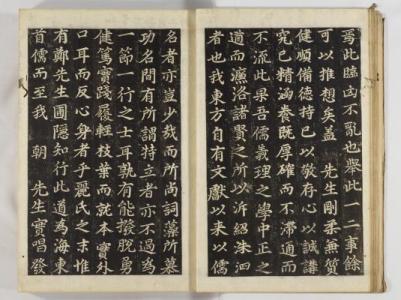 焉此臨亂不亂也舉此一二事餘
可以推想矣蓋 先生剛柔兼質
健順備德持己以敬存心以誠講
究已精涵養既厚確而不滯通而
不流此果吾儒義理之學中正之
道而濂洛諸賢之所以泝紹洙泗
者也我東方自有文獻以來以儒
名者亦豈少哉而所尚詞藻所慕
功名間有所謂特立者亦不過爲
一節一行之士耳孰有能擺脫勇
健篤實踐履輕枝葉而就本實外
口耳而反心身者乎麗氏之末惟
有鄭先生圃隱知行此道爲海東
首儒而至我 朝 先生實唱發